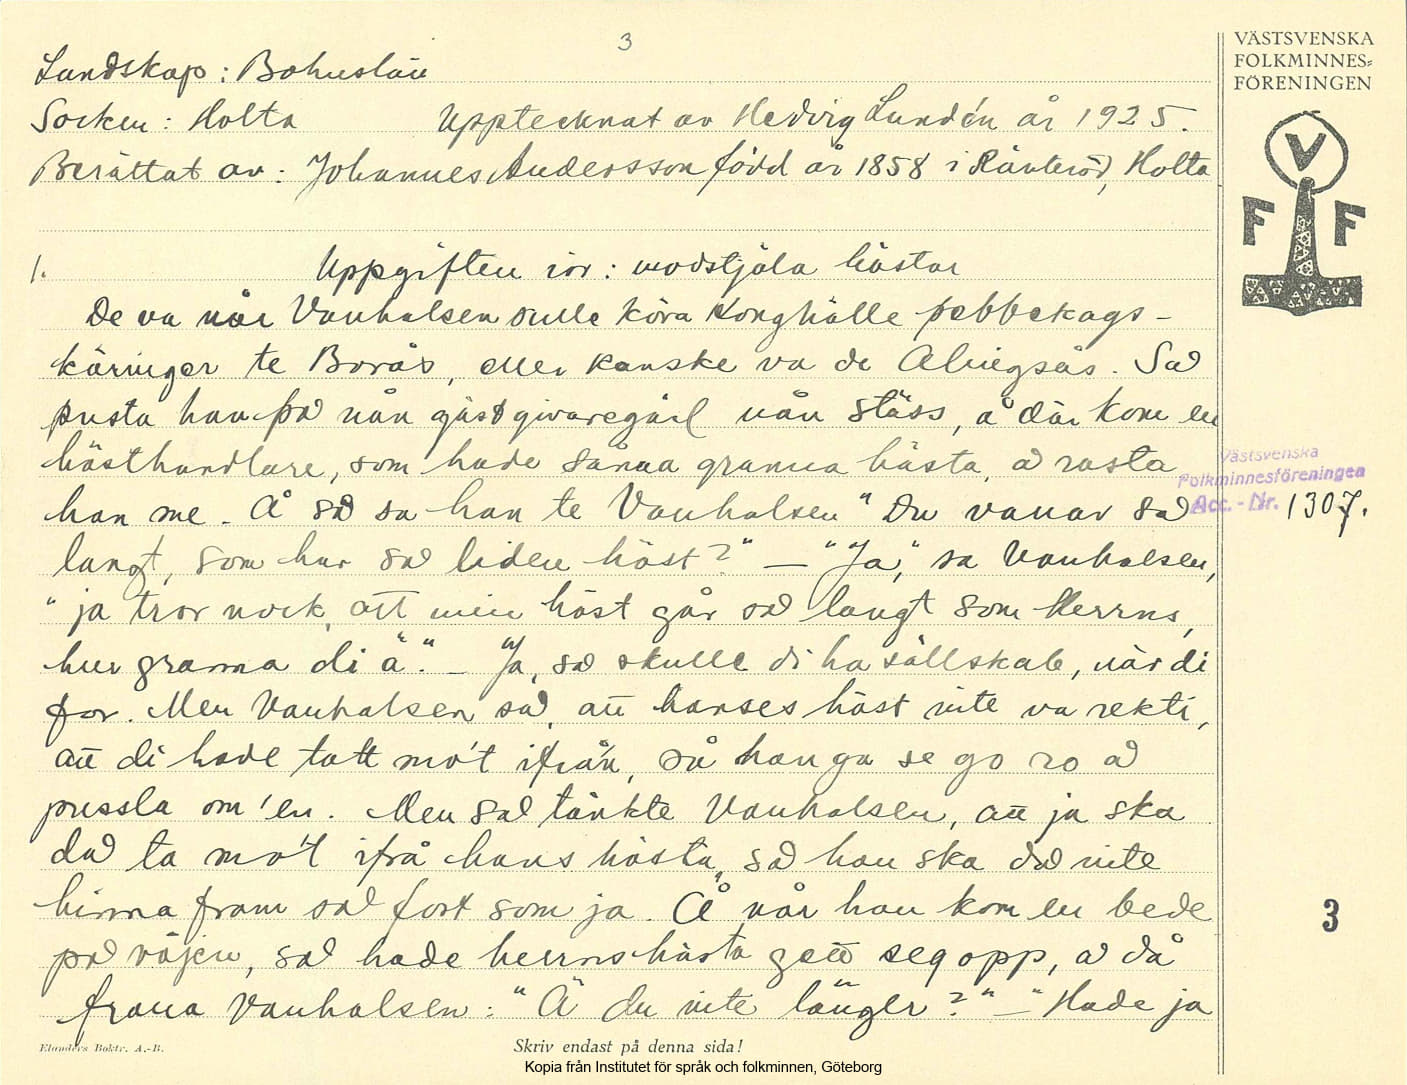 3
VÄSTSVENSKA
FOLKMINNES-
FÖRENINGEN
V
F F
Landskap: Bohuslän
Socken: Holta Upptecknat av Hedvig Lundén år 1925.
Berättat av: Johannes Andersson född år 1858 i Ränteröd, Holta
1. Uppgiften rör: modstjäla hästar
De va når Vanhalsen sulle köra Konghälle pebbekags-
käringer te Borås, eller kanske va de Alingsås. Så
pusta han på nån gästgivaregårl nån stäss, å där kom en
hästhandlare, som hade sånna granna hästa, å rasta
han me. Å så sa han te Vanhalsen "Du vanar så
langt, som har så liden häst?" — "Ja," sa Vanhalsen,
"ja tror nock, att min häst går så langt som Herrns,
hur granna di ä". — Ja, så skulle di ha sällskab, når di
for. Men Vanhalsen sa, att hanses häst inte va rekti,
att di hade tatt mo't ifrån, så han ga se go ro å
pussla om 'en. Men så tänkte Vanhalsen, att ja ska
då ta mo't ifrå hans hästa, så han ska då inte
hinna fram så fort som ja. Å når han kom en bede
på väjen, så hade herrns hästa gett seg opp, å då
fraua Vanhalsen: "Ä du inte länger?" — "Hade ja
Västsvenska
Folkminnesföreningen
Acc.-Nr. 1307.
3
Elanders Boktr. A.-B.
Skriv endast på denna sida!
Kopia från Institutet för språk och folkminnen, Göteborg